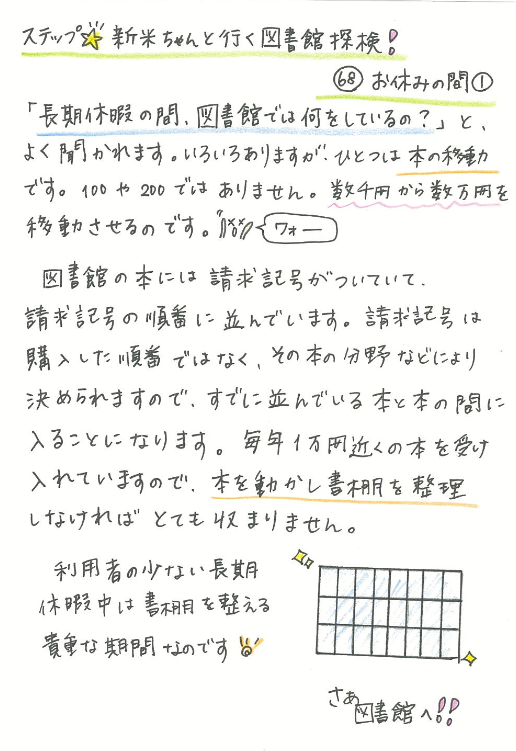 ステップ☆新米ちゃんと行く図書館探検!
68 お休みの間①
「長期休暇の間、図書館では何をしているの?」と、
よく聞かれます。いろいろありますが、ひとつは本の移動
です。100や200ではありません。数千冊から数万冊を
移動させるのです。 ワォー
図書館の本には請求記号がついていて、
請求記号の順番に並んでいます。請求記号は
購入した順番ではなく、その本の分野などにより
決められますので、すでに並んでいる本と本の間に
入ることになります。毎年1万冊近くの本を受け
入れていますので、本を動かし書棚を整理
しなければとても収まりません。
利用者の少ない長期
休暇中は書棚を整える
貴重な期間なのです
さあ図書館へ!!